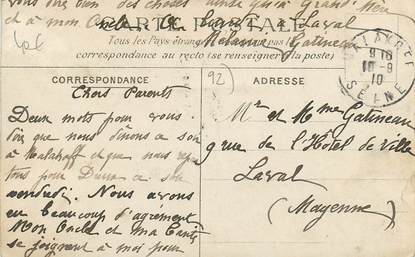 vous dire bien des choses ainsi qu'à Grand' Mère
et à mon Oncle
à Laval
CARTE POSTALE
Mélanie Gatineau
Tous les Pays étrangers pas
correspondance au recto (se renseigner à la poste)
MALAKOFF
9 10
10 -9
10
SEINE
CORRESPONDANCE
92
ADRESSE
Chers Parents
Deux mots pour vous
dire que nous dînons ce soir
à Malakoff et que nous
pour ce soir
vendredi. Nous avons
eu beaucoup d'agrément
Mon Oncle et ma Tante
se joignent à moi pour
Mr et Mme Gatineau
9 rue de l'Hôtel de ville
Laval
(Mayenne)